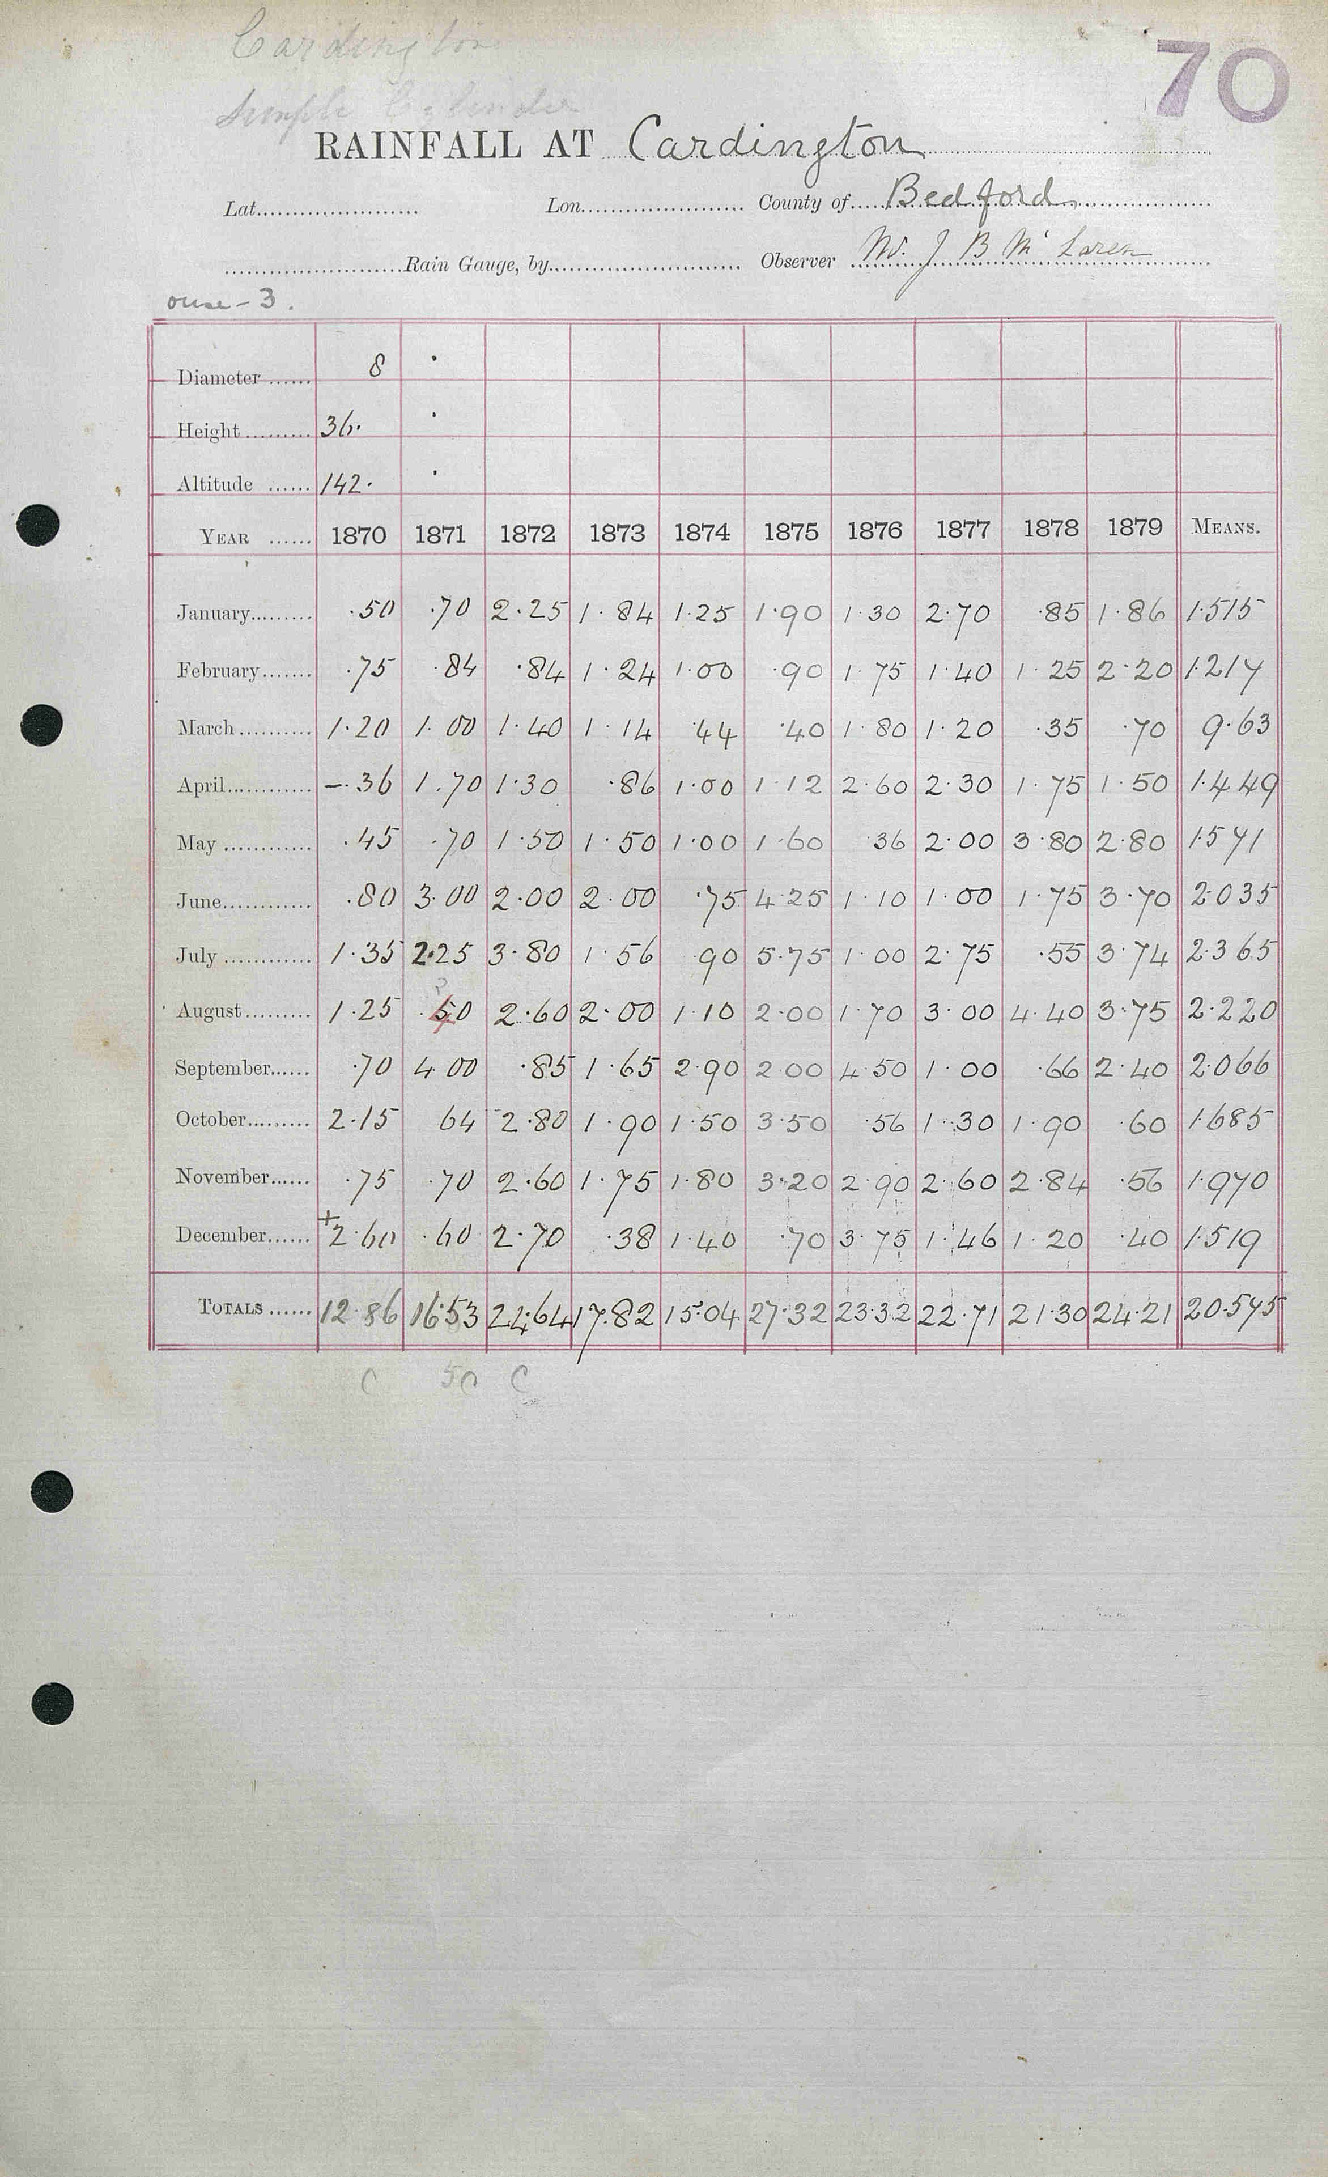 Cardington
70
Simple Cylinder
RAINFALL AT Cardington
Lat. Lon. County of Bedford
Rain Gauge, by Observer Mr. J B McLaren
ouse - 3.
Diameter 8 ·
Height 36· ·
Altitude 142· ·
YEAR 1870 1871 1872 1873 1874 1875 1876 1877 1878 1879 MEANS.
January ·50 ·70 2·25 1·84 1·25 1·90 1·30 2·70 ·85 1·86 1·515
February ·75 ·84 ·84 1·24 1·00 ·90 1·75 1·40 1·25 2·20 1·217
March 1·20 1·00 1·40 1·14 ·44 ·40 1·80 1·20 ·35 ·70 9·63
April -·36 1·70 1·30 ·86 1·00 1·12 2·60 2·30 1·75 1·50 1·449
May ·45 ·70 1·50 1·50 1·00 1·60 36 2·00 3·80 2·80 1·571
June ·80 3·00 2·00 2·00 ·75 4·25 1·10 1·00 1·75 3·70 2·035
July 1·35 2·25 3·80 1·56 90 5·75 1·00 2·75 ·55 3·74 2·365
August 1·25 ·50 2·60 2·00 1·10 2·00 1·70 3·00 4·40 3·75 2·220
September ·70 4·00 ·85 1·65 2·90 2·00 4·50 1·00 ·66 2·40 2·066
October 2·15 64 2·80 1·90 1·50 3·50 ·56 1·30 1·90 ·60 1·685
November ·75 ·70 2·60 1·75 1·80 3·20 2·90 2·60 2·84 ·56 1·970
December +2·60 ·60 2·70 ·38 1·40 ·70 3·75 1·46 1·20 ·40 1·519
TOTALS 12·86 16·53 24·64 17·82 15·04 27·32 23·32 22·71 21·30 24·21 20·575
C 50 C